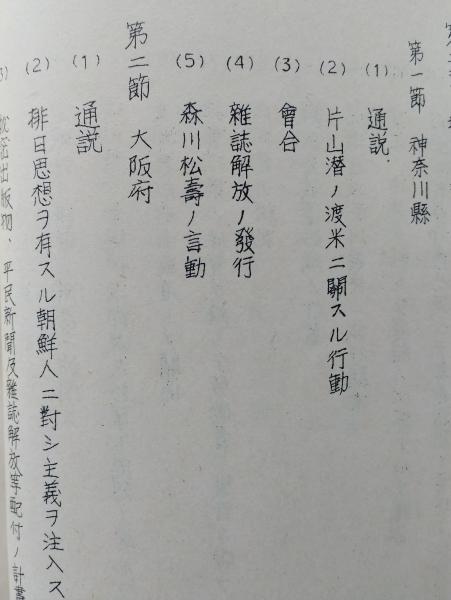 第一節 神奈川縣
(1) 通説
(2) 片山潜ノ渡米ニ關スル行動
(3) 會合
(4) 雜誌解放ノ發行
(5) 森川松壽ノ言動
第二節 大阪府
(1) 通説
(2) 排日思想ヲ有スル朝鮮人ニ對シ主義ヲ注入ス
出版物、平民新聞及雜誌解放等配付ノ計畫